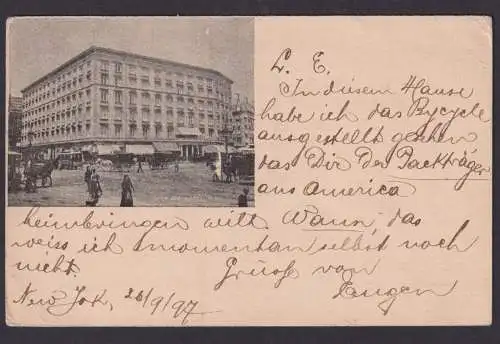 L. E.
In diesem Hause
habe ich das Bycycle
ausgestellt gesehen
das Dir Der Packträger
aus America
heimbringen will. Wann, das
weiss ich momentan selbst noch
nicht. Grüsse von
New York, 26/9/97 Eugen